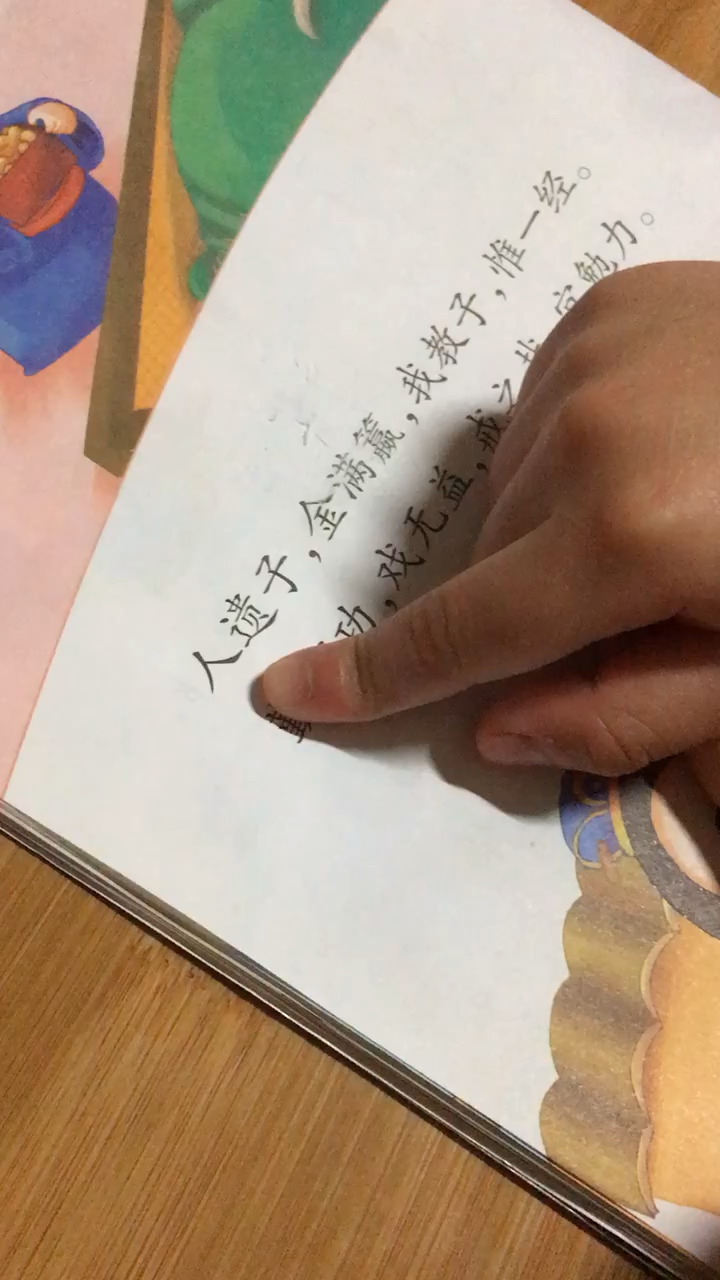 人遗子，金满籯，我教子，惟一经。
功，戏无益，戒之 宜勉力。